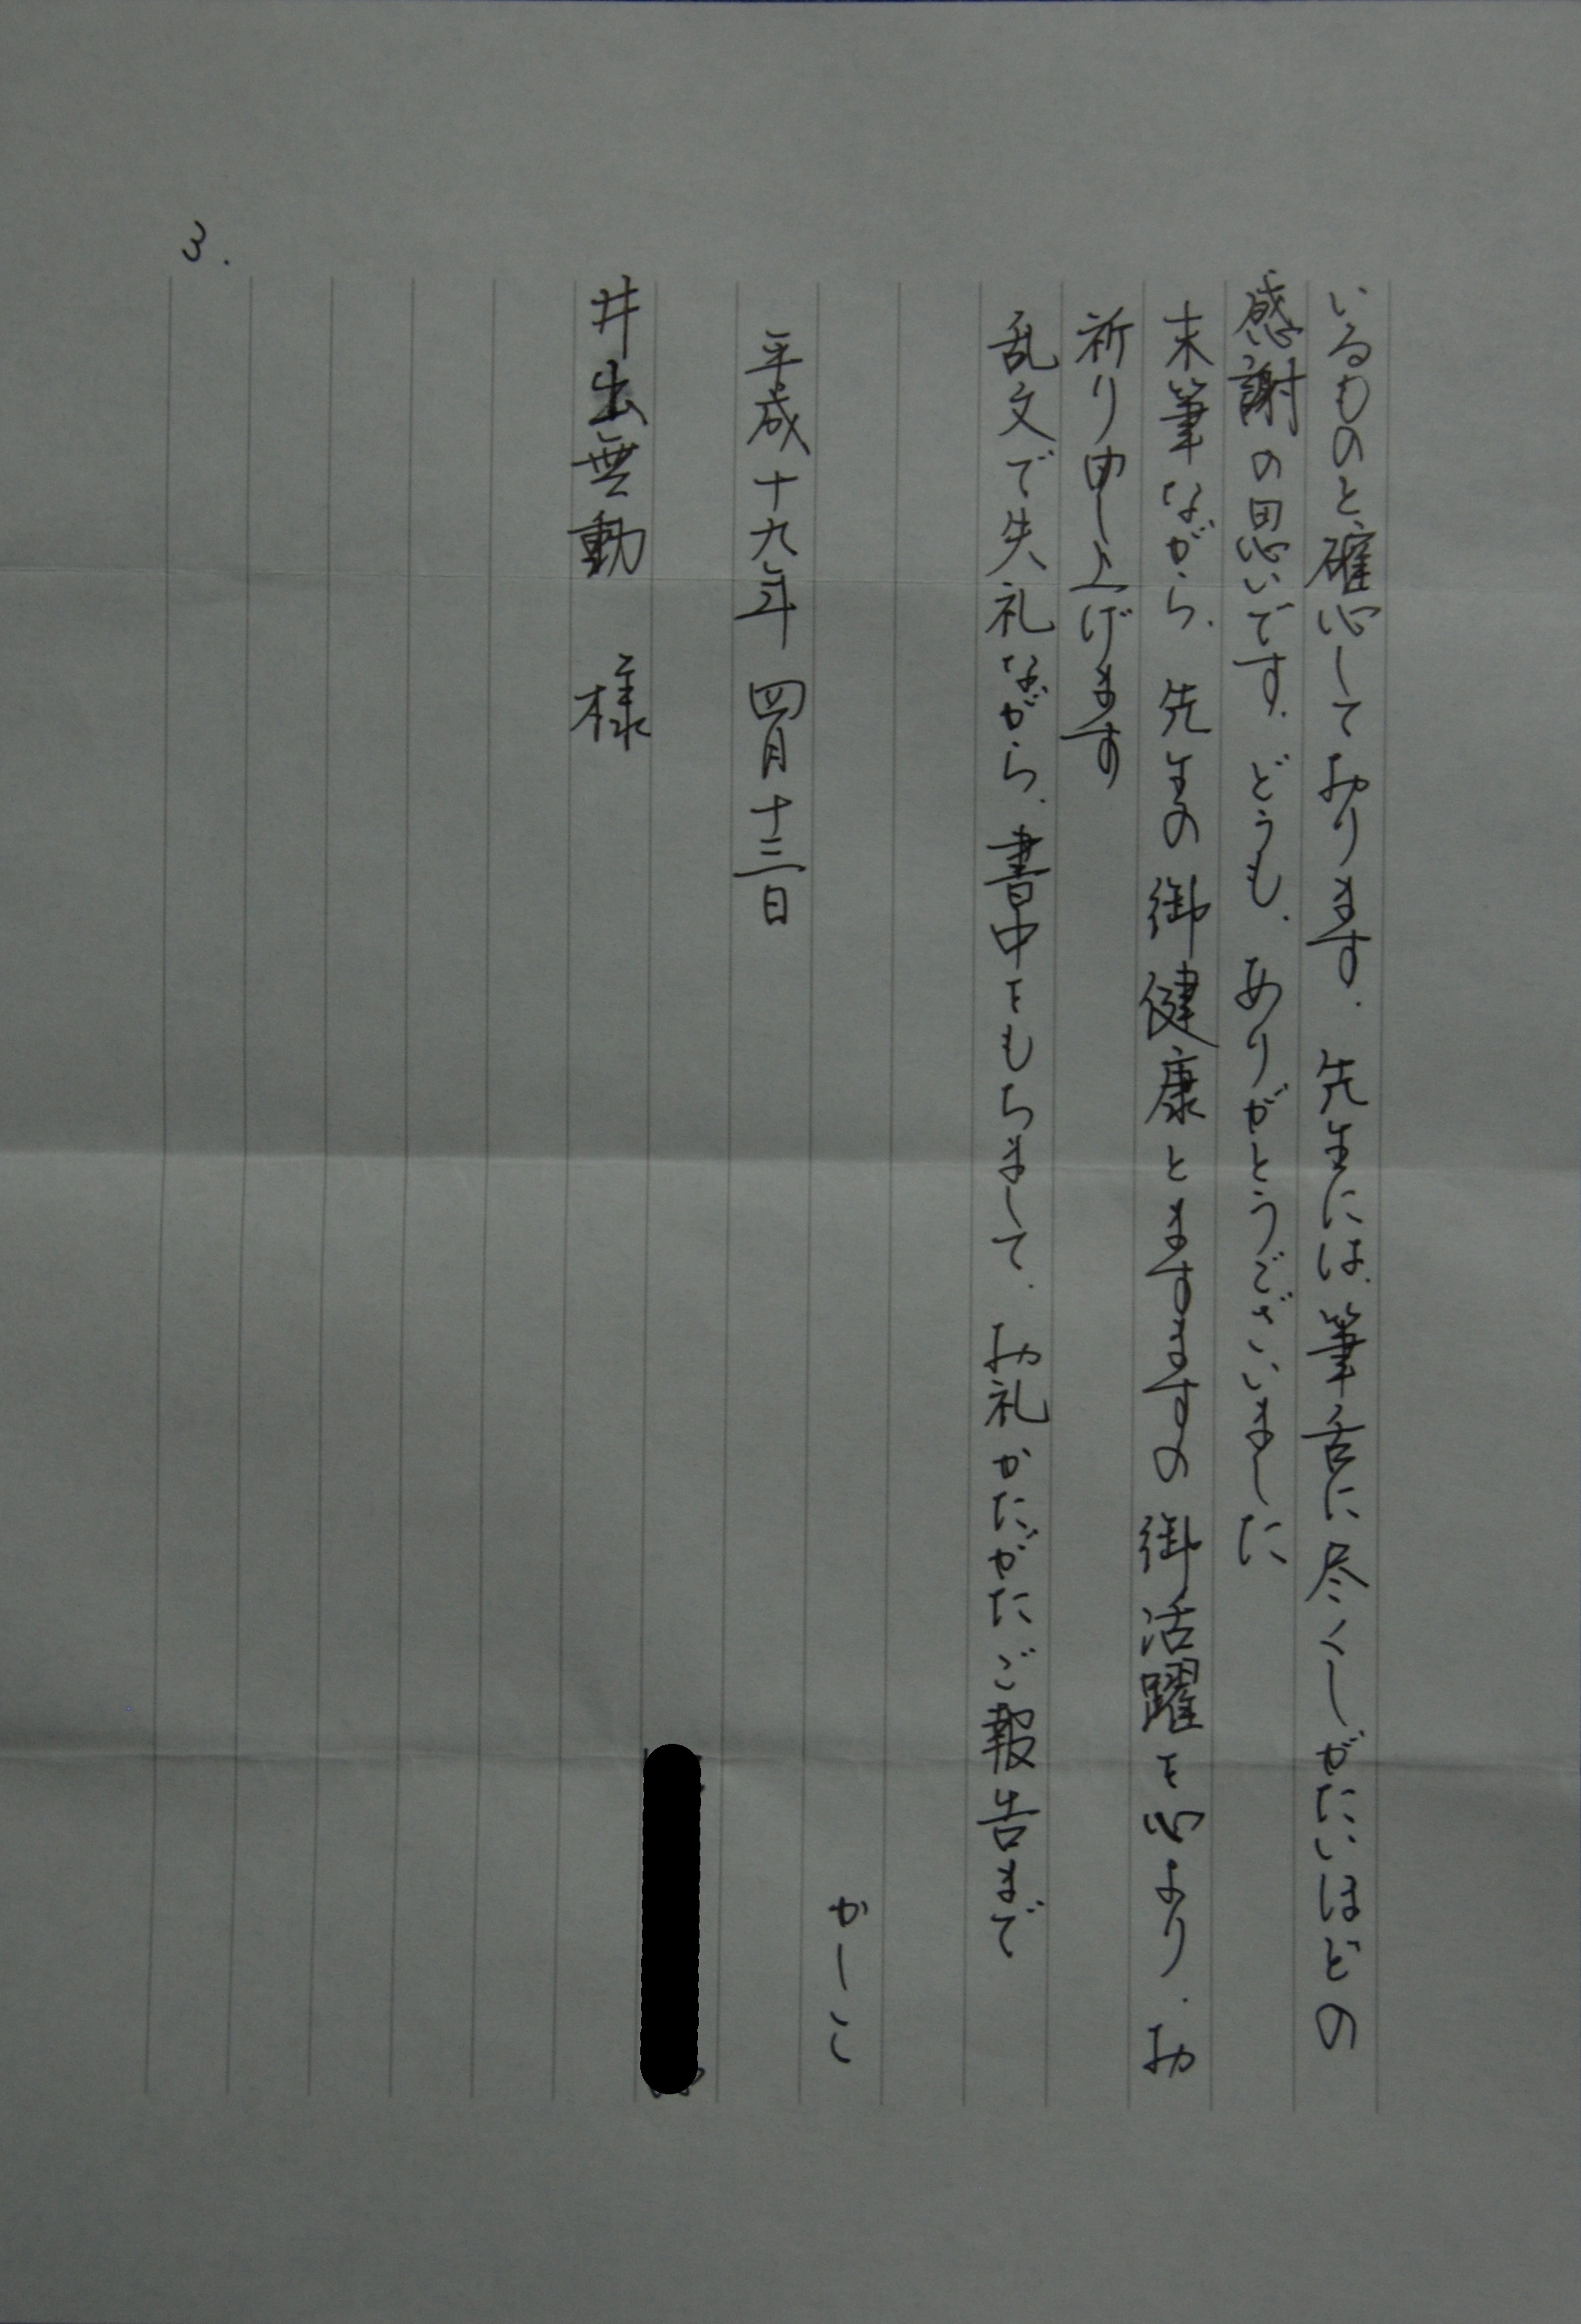 いるものと、確心しております。先生には、筆舌に尽くしがたいほどの
感謝の思いです。どうも、ありがとうございました
末筆ながら、先生の御健康とますますの御活躍を心より、お
祈り申し上げます
乱文で失礼ながら、書中をもちまして、お礼かたがたご報告まで
かしこ
平成十九年四月十三日
井出無動 様
3.